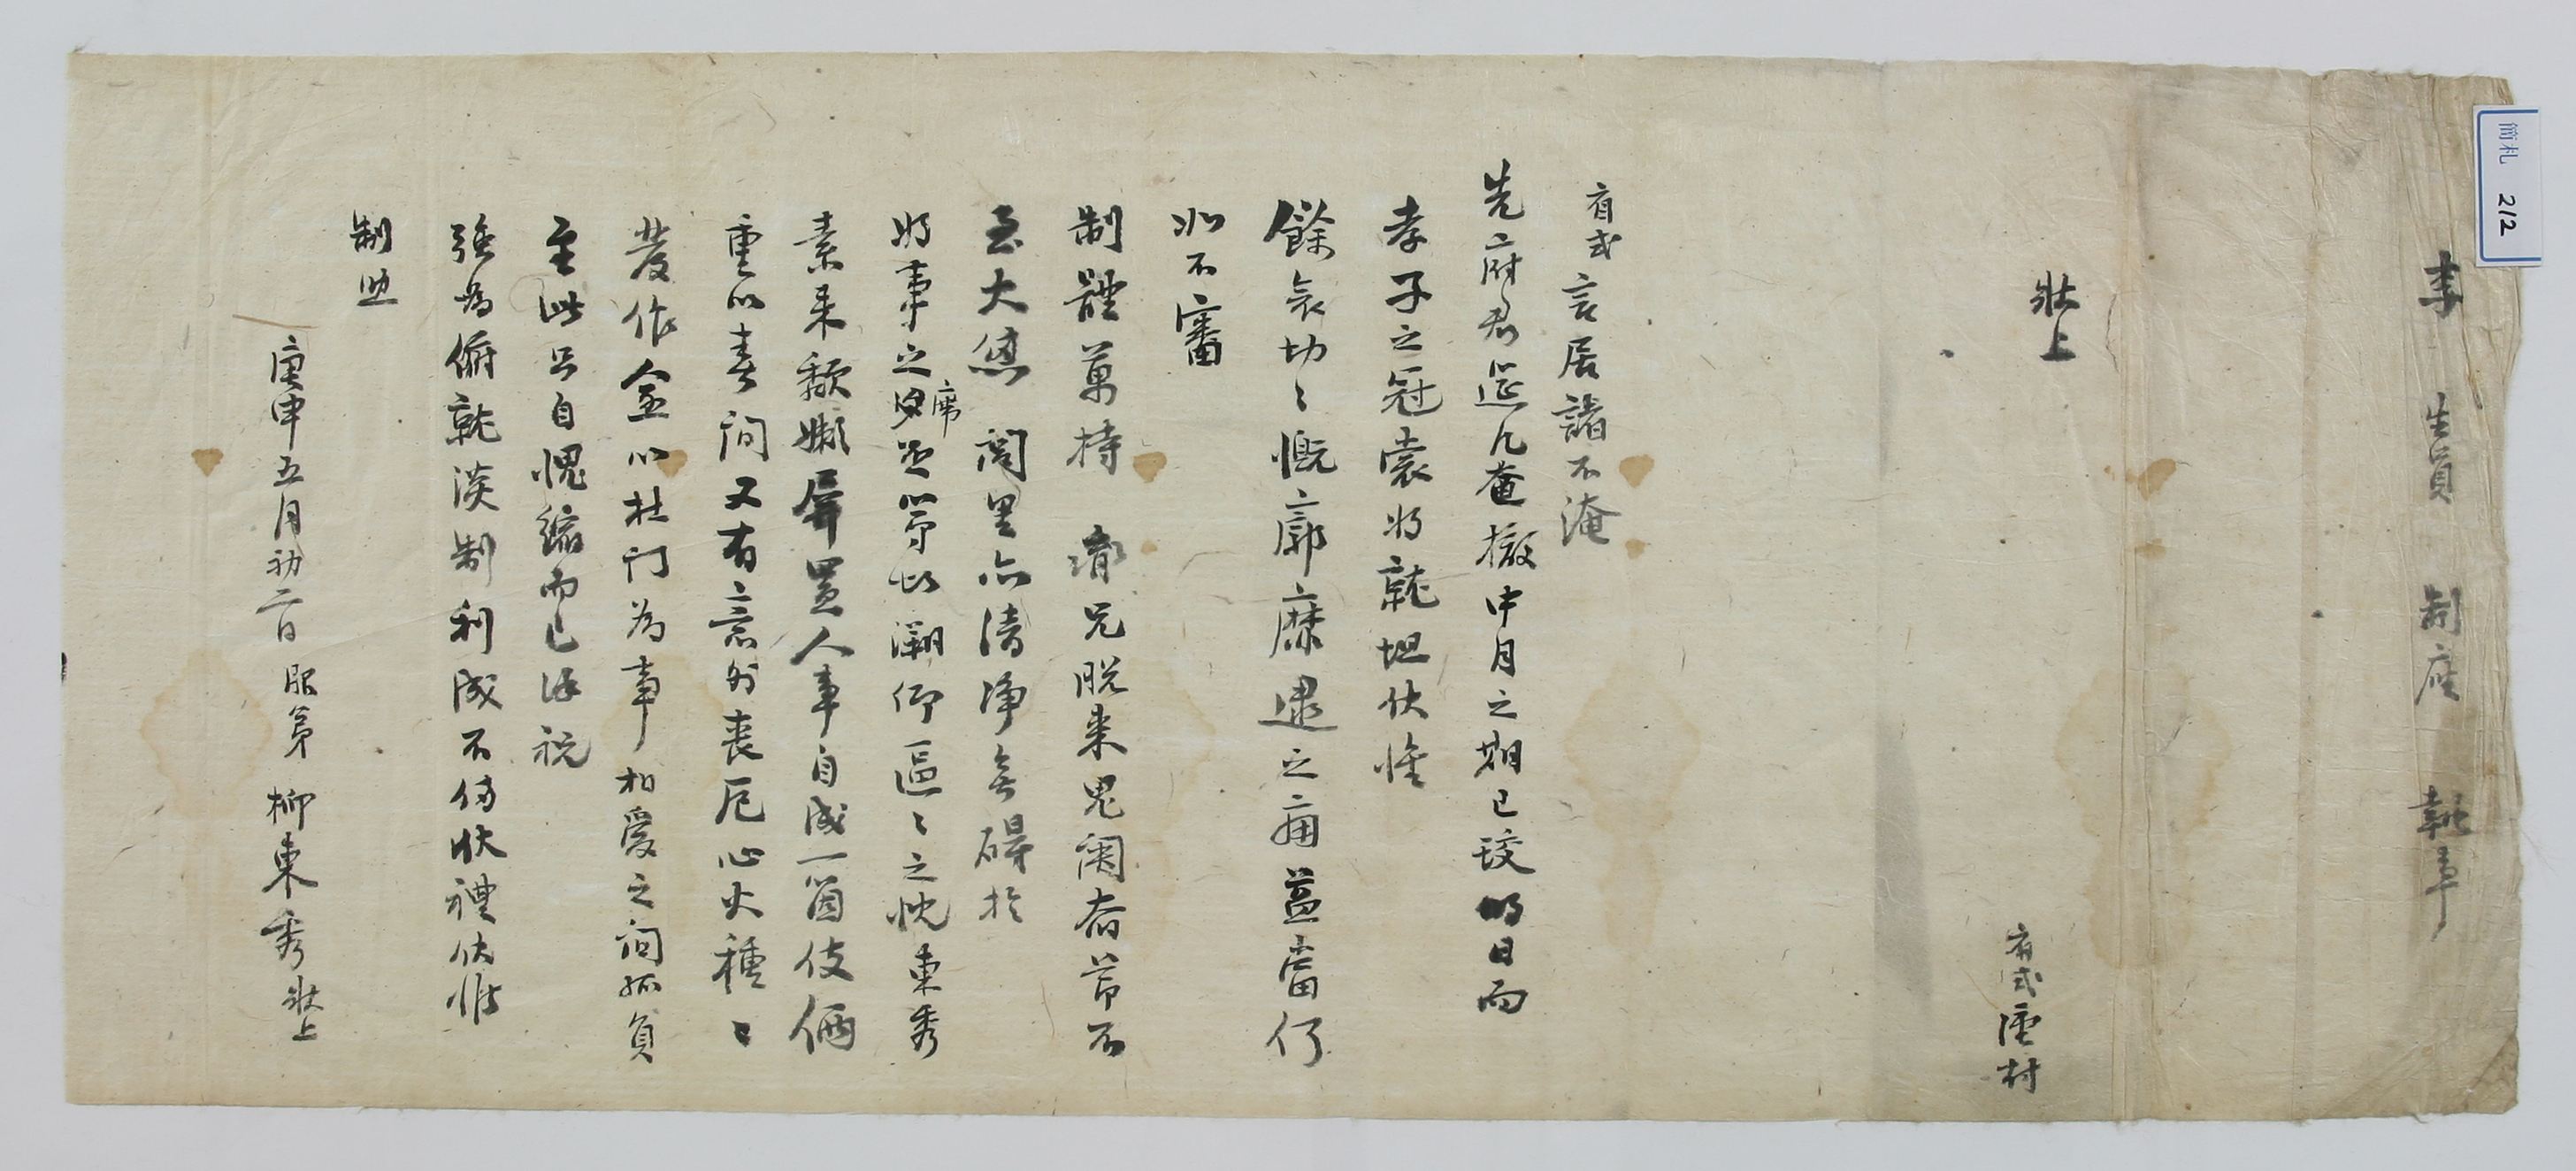 簡札 212
李 生員 制座 執事
狀上
省式 溪村
省式言居諸不淹
先府君筵几奄撤中月之期已設明日而
孝子之冠裳將就坦伏惟
餘哀切〻慨廓靡逮之痛益當仍
如不審
制體萬持 兄脫來鬼關者節不
至大愆閤里亦淸淨無碍於
將事之席 以溯仰區〻之忱東秀
素來 嬾屛置人事自成一箇伎倆
重以春間又有意外喪厄心火種〻
發作全以杜門爲事相愛之間孤負
至此只自愧縮而已謹祝
强爲俯就淡制利成不備狀禮伏惟
制照
庚申五月初二日 服弟 柳東秀 狀上